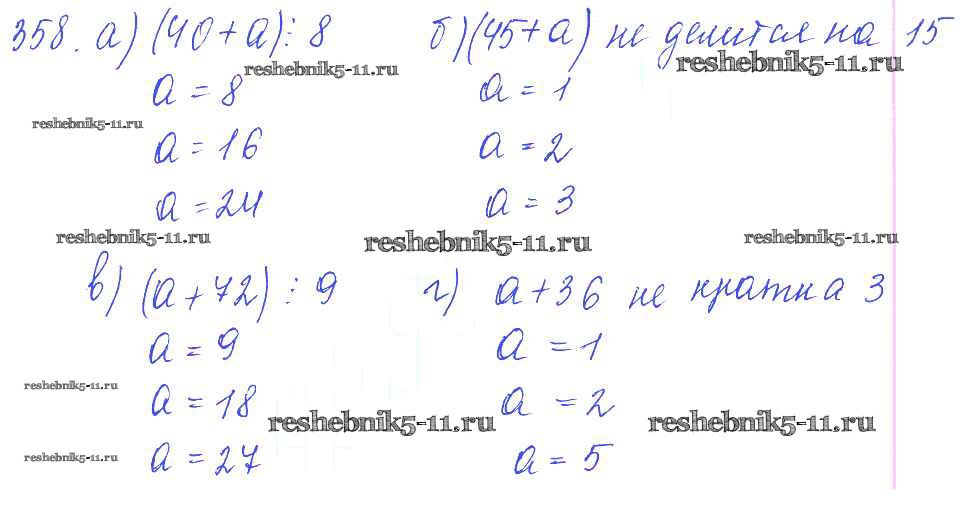 358. а) (40+а)⋮8 б) (45+а) не делится на 15
reshebnik5-11.ru reshebnik5-11.ru
а = 8 а = 1
reshebnik5-11.ru
а = 16 а = 2
а = 24 а = 3
reshebnik5-11.ru reshebnik5-11.ru reshebnik5-11.ru
в) (а+72)⋮9 г) а+36 не кратна 3
а = 9 а = 1
reshebnik5-11.ru
а = 18 а = 2
reshebnik5-11.ru reshebnik5-11.ru
а = 27 а = 5
reshebnik5-11.ru